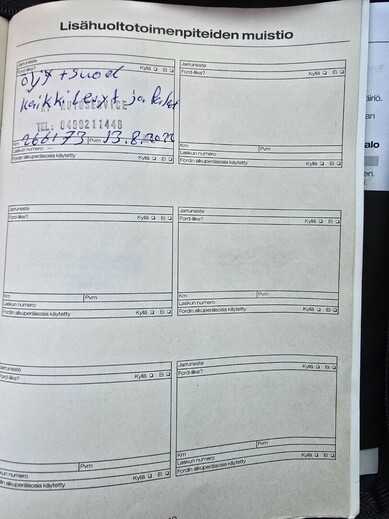 Lisähuoltotoimenpiteiden muistio
Jarruneste
Ford-liike? Kyllä Ei
öljyt + suod
kaikki
AUTOSERVICE
TEL: 0400211446
Km 266173 Pvm 13.8.2022
Laskun numero
Fordin alkuperäisosia käytetty
Jarruneste
Ford-liike? Kyllä Ei
Km Pvm
Laskun numero
Fordin alkuperäisosia käytetty
Jarruneste
Ford-liike? Kyllä Ei
Km Pvm
Laskun numero
Fordin alkuperäisosia käytetty
Jarruneste
Ford-liike? Kyllä Ei
Km Pvm
Laskun numero
Fordin alkuperäisosia käytetty
Jarruneste
Ford-liike? Kyllä Ei
Km Pvm
Laskun numero
Fordin alkuperäisosia käytetty
Jarruneste
Ford-liike? Kyllä Ei
Km Pvm
Laskun numero
Fordin alkuperäisosia käytetty